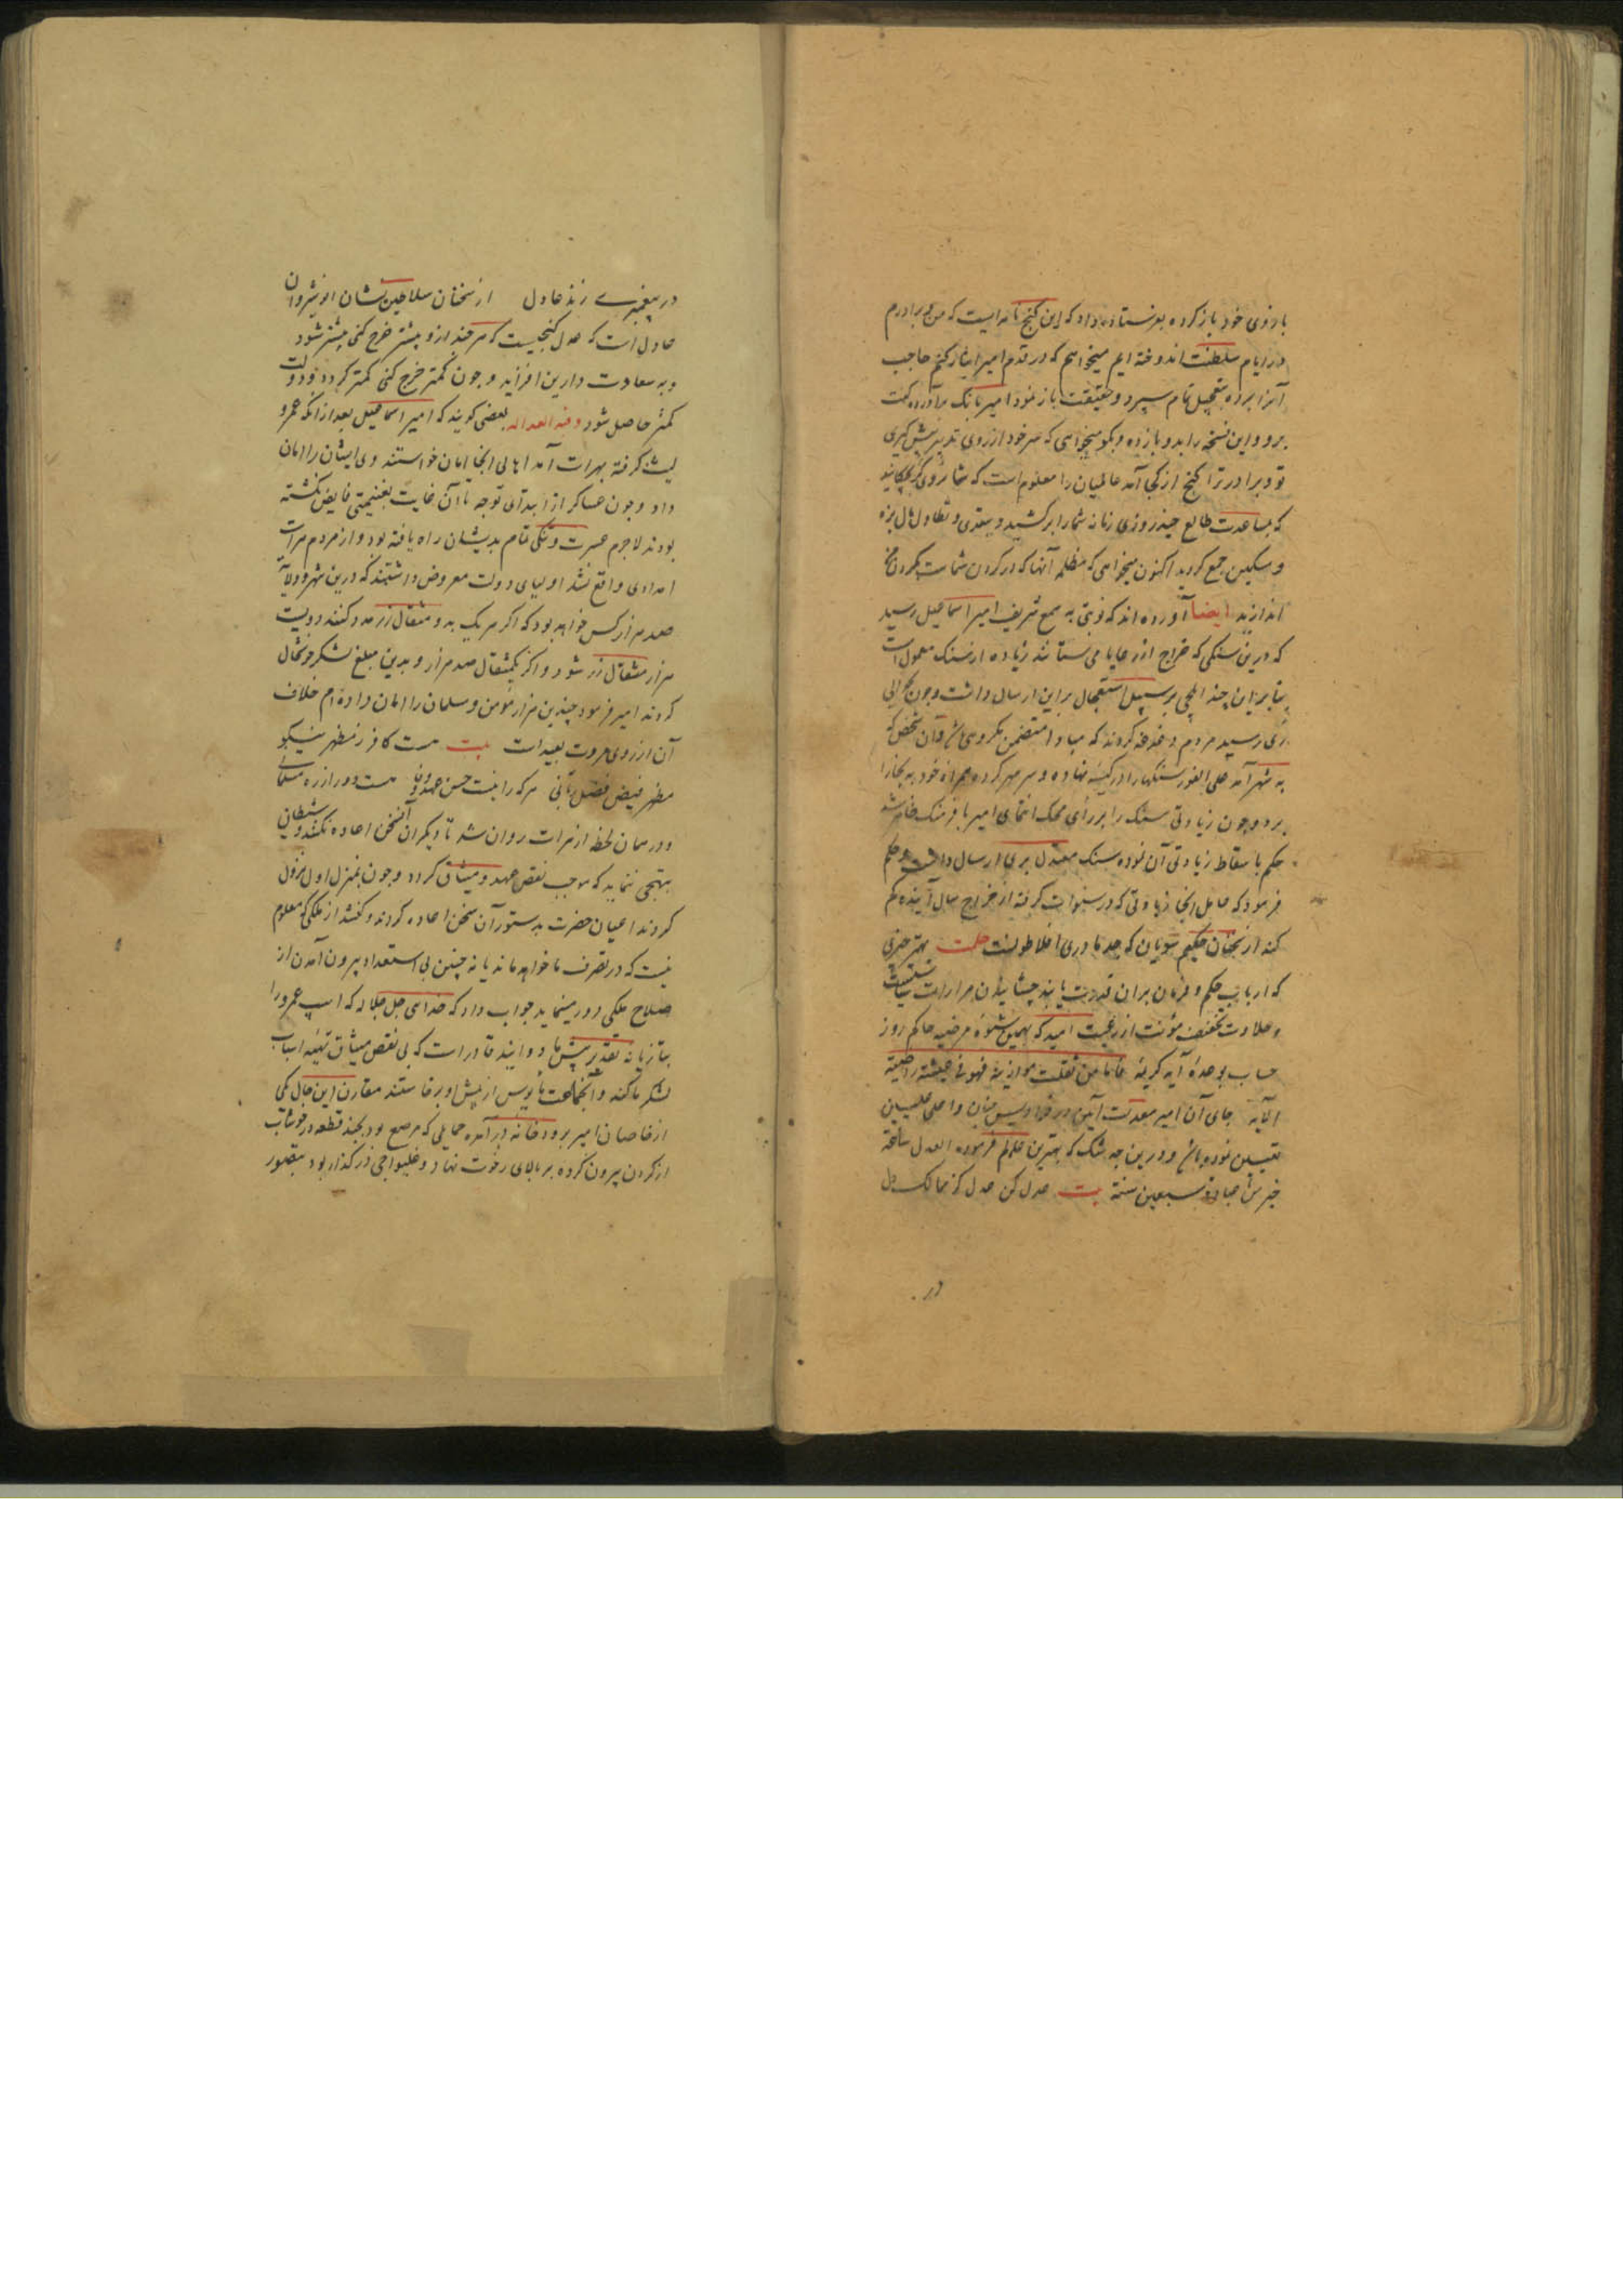 بازوی خود باز کرده بفرستاده داد که این کنج نامه ایست که من و برادرم
در ایام سلطنت اندوخته ایم میخواهم که در قدم امیر ایثار کنم حاجب
آنرا برده بتعجیل تمام سپرد و حقیقت باز نمود امیر بانک برآورده کفت
برو و این نسخه را بدو باز ده و بکو میخواهی که هم خود از روی تدبیر پیش کیری
تو و برادر ترا کنج از کجا آمد عالمیان را معلوم است که شما
که بمساعدت طالع چند روزی زمانه شما را برکشید و بتعدی و تطاول مال
و مسکین جمع کردید اکنون میخواهی که مظلمه آنها که در کردن شماست بکردن ما
اندازید ایضا آورده اند که نوبتی به سمع شریف امیر اسماعیل رسید
که درین سنکی که خراج از رعایا می ستانند زیاده از سنک معمول است
بنابراین چند ایلچی بر سبیل استعجال براین ارسال داشت و چون
ری رسید مردم دغدغه کردند که مبادا متضمن مکروهی باشد و آن شخص که
به شهر آمد علی الفور سنکها را در کیسه نهاده و سر مهر کرده همراه خود به بخارا
برد و چون زیادتی سنک را بر رأی امیر با فرهنک ظاهر شد
حکم باسقاط زیادتی آن نموده سنک معتدل بری ارسال داشت و حکم
فرمود که عامل انجا زیادتی که در سنوات کرفته از خراج سال آینده کم
کند از سخنان حکیم که جد مادری افلاطونست حکمت بهتر چیزی
که ارباب حکم و فرمان بران قدرت یابند چشانیدن مرارات سیاست
و حلاوت تخفیف مؤنت از رعیت امید که بهمین شیوه مرضیه حاکم روز
حساب بوعده آیه کریمه فاما من ثقلت موازینه فهو فی عیشة راضیة
الآیة جای آن امیر معدلت آیین در فرادیس جنان و اعلی علیین
تعیین نموده باشد و درین چه شک که بهترین عالم فرموده العدل ساعة
خیر من عبادة سبعین سنة بیت عدل کن عدل کز ممالک دل
در
در پیغمبری زند عادل از سخنان سلاطین نشان انوشیروان
عادل است که عدل کنجیست که هر چند ازو بیشتر خرج کنی بیشتر شود
و به سعادت دارین افزاید و چون کمتر خرج کنی کمتر کردد و دولت
کمتر حاصل شود و فیه العداله بعضی کویند که امیر اسماعیل بعد ازانکه عمرو
لیث کرفته بهرات آمد اهالی انجا امان خواستند وی ایشان را امان
داد و چون عساکر از ابتدای توجه تا آن غایت بغنیمتی فایض نکشته
بودند لاجرم عسرت و تنکی تمام بدیشان راه یافته بود و از مردم هرات
امدادی واقع نشد اولیای دولت معروض داشتند که درین شهر و ولایت
صد هزار کس خواهد بود که اکر هر یک به دو مثقال زر مدد کنند دویست
هزار مثقال زر شود و اکر یکمثقال صد هزار و بدین مبلغ لشکر خوشحال
کردند امیر فرمود چندین هزار مؤمن و مسلمان را امان داده ام خلاف
آن از روی مروت بعید است بیت هست کافر ز مظهر نیکو
مظهر فیض فضل ربانی هر که را نیست حسن عهد و وفا هست دور از ره مسلمانی
و در همان لحظه از هرات روان شد تا دیکران آنسخن اعاده نکنند و شیطان
بنهجی ننماید که موجب نقض عهد و میثاق کردد و چون بمنزل اول نزول
کردند اعیان حضرت بدستور آن سخن اعاده کردند و کفتند از ملکی که معلوم
نیست که در تصرف ما خواهد ماند یا نه چنین بی استعداد بیرون آمدن از
صلاح ملکی دور مینماید جواب داد که خدای جل جلاله که اسپ عمرو را
بتازیانه تقدیر پیش ما دوانید قادر است که بی نقض میثاق تهیه اسباب
لشکر ما کند و آنجماعت مأیوس از پیش او برخاستند مقارن این حال یکی
از خاصان امیر برودخانه درآمده حمایلی که مرصع بود بچند قطعه در خوشاب
از کردن بیرون کرده بر بالای رخوت نهاد و غلیواجی در کذار بود بتصور